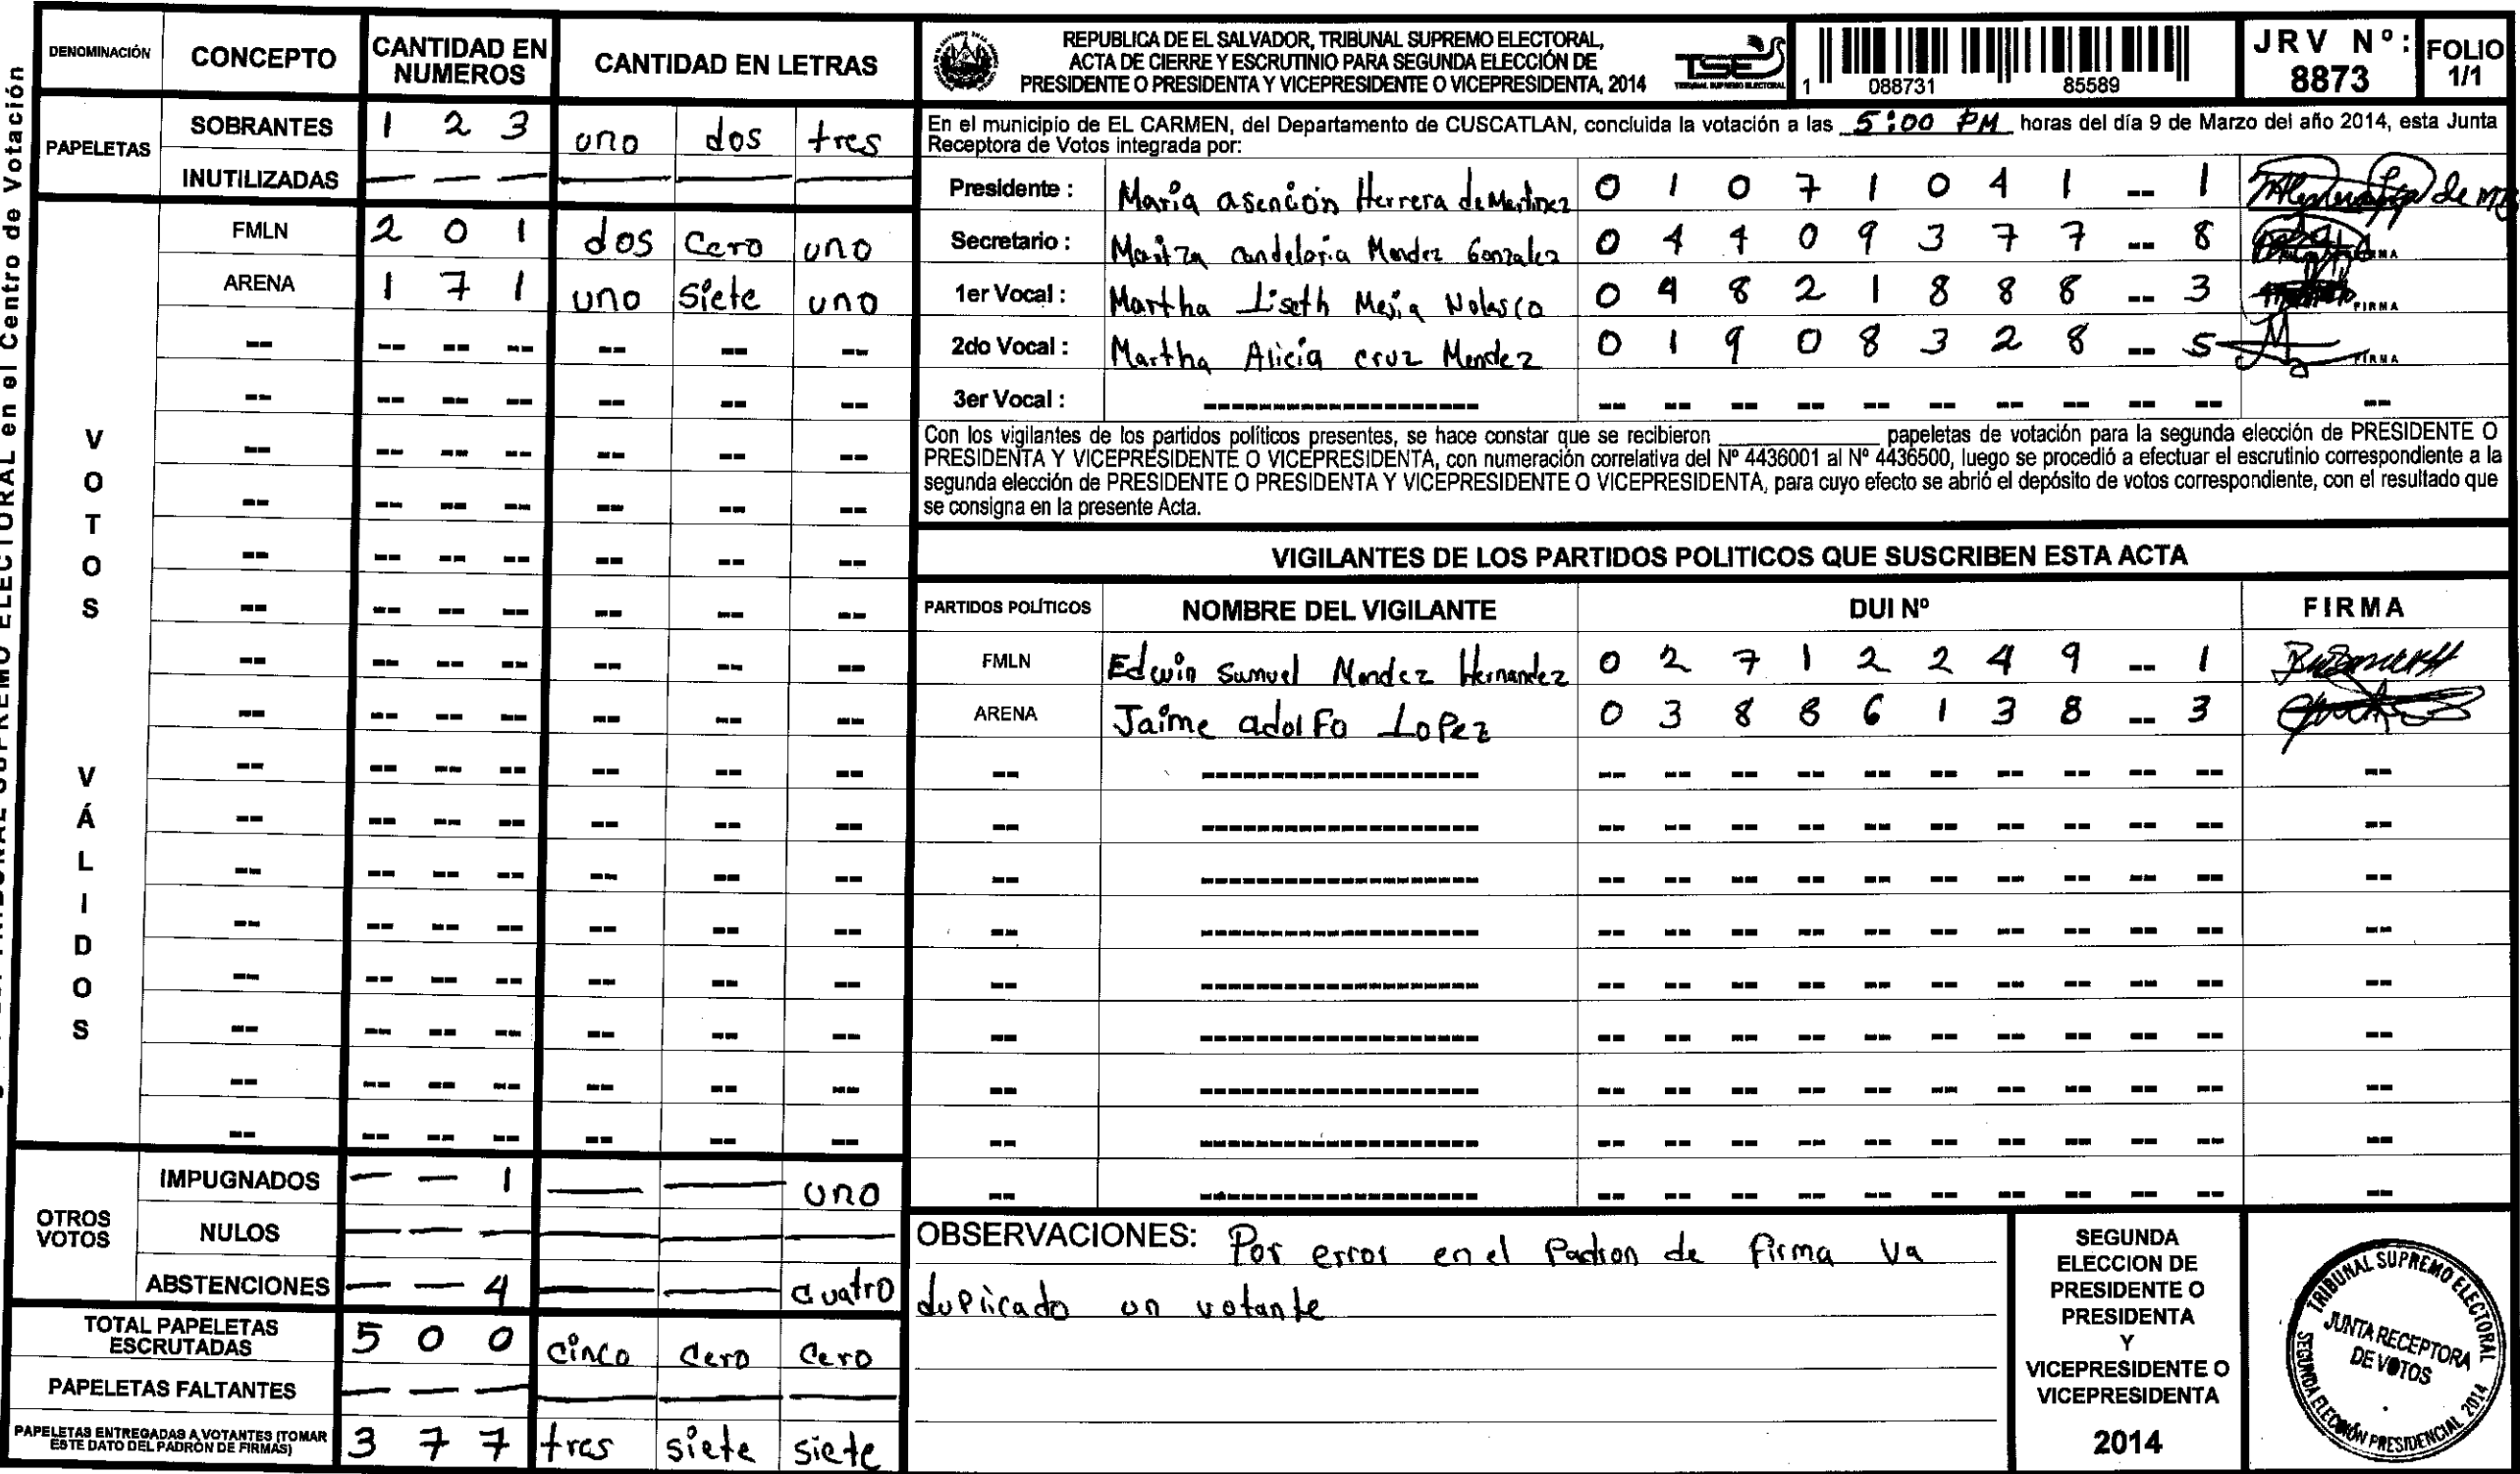 DENOMINACIÓN CONCEPTO CANTIDAD EN NUMEROS CANTIDAD EN LETRAS
PAPELETAS
SOBRANTES 1 2 3 uno dos tres
INUTILIZADAS — — — — — —
VOTOS VÁLIDOS
FMLN 2 0 1 dos cero uno
ARENA 1 7 1 uno siete uno
OTROS VOTOS
IMPUGNADOS — — 1 — — uno
NULOS — — — — — —
ABSTENCIONES — — 4 — — cuatro
TOTAL PAPELETAS ESCRUTADAS 5 0 0 cinco cero cero
PAPELETAS FALTANTES — — — — — —
PAPELETAS ENTREGADAS A VOTANTES (TOMAR ESTE DATO DEL PADRÓN DE FIRMAS) 3 7 7 tres siete siete
REPUBLICA DE EL SALVADOR, TRIBUNAL SUPREMO ELECTORAL,
ACTA DE CIERRE Y ESCRUTINIO PARA SEGUNDA ELECCIÓN DE
PRESIDENTE O PRESIDENTA Y VICEPRESIDENTE O VICEPRESIDENTA, 2014
TSE
TRIBUNAL SUPREMO ELECTORAL
1 088731 85589
JRV Nº: 8873
FOLIO 1/1
En el municipio de EL CARMEN, del Departamento de CUSCATLAN, concluida la votación a las 5:00 PM horas del día 9 de Marzo del año 2014, esta Junta
Receptora de Votos integrada por:
Presidente : Maria asención Herrera de Martinez 0 1 0 7 1 0 4 1 -- 1
Secretario : Maritza Candeloria Mendez Gonzalez 0 4 4 0 9 3 7 7 -- 8
1er Vocal : Martha Liseth Mejia Nolasco 0 4 8 2 1 8 8 8 -- 3 FIRMA
2do Vocal : Martha Alicia cruz Mendez 0 1 9 0 8 3 2 8 -- 5 FIRMA
3er Vocal :
Con los vigilantes de los partidos políticos presentes, se hace constar que se recibieron ________ papeletas de votación para la segunda elección de PRESIDENTE O
PRESIDENTA Y VICEPRESIDENTE O VICEPRESIDENTA, con numeración correlativa del Nº 4436001 al Nº 4436500, luego se procedió a efectuar el escrutinio correspondiente a la
segunda elección de PRESIDENTE O PRESIDENTA Y VICEPRESIDENTE O VICEPRESIDENTA, para cuyo efecto se abrió el depósito de votos correspondiente, con el resultado que
se consigna en la presente Acta.
VIGILANTES DE LOS PARTIDOS POLITICOS QUE SUSCRIBEN ESTA ACTA
PARTIDOS POLÍTICOS NOMBRE DEL VIGILANTE DUI Nº FIRMA
FMLN Edwin Samuel Mendez Hernandez 0 2 7 1 2 2 4 9 -- 1
ARENA Jaime adolfo Lopez 0 3 8 8 6 1 3 8 -- 3
OBSERVACIONES: Por error en el Padron de firma va
duplicado un votante
SEGUNDA
ELECCION DE
PRESIDENTE O
PRESIDENTA
Y
VICEPRESIDENTE O
VICEPRESIDENTA
2014
TRIBUNAL SUPREMO ELECTORAL
JUNTA RECEPTORA
DE VOTOS
SEGUNDA ELECCIÓN PRESIDENCIAL 2014
ELECTORAL en el Centro de Votación